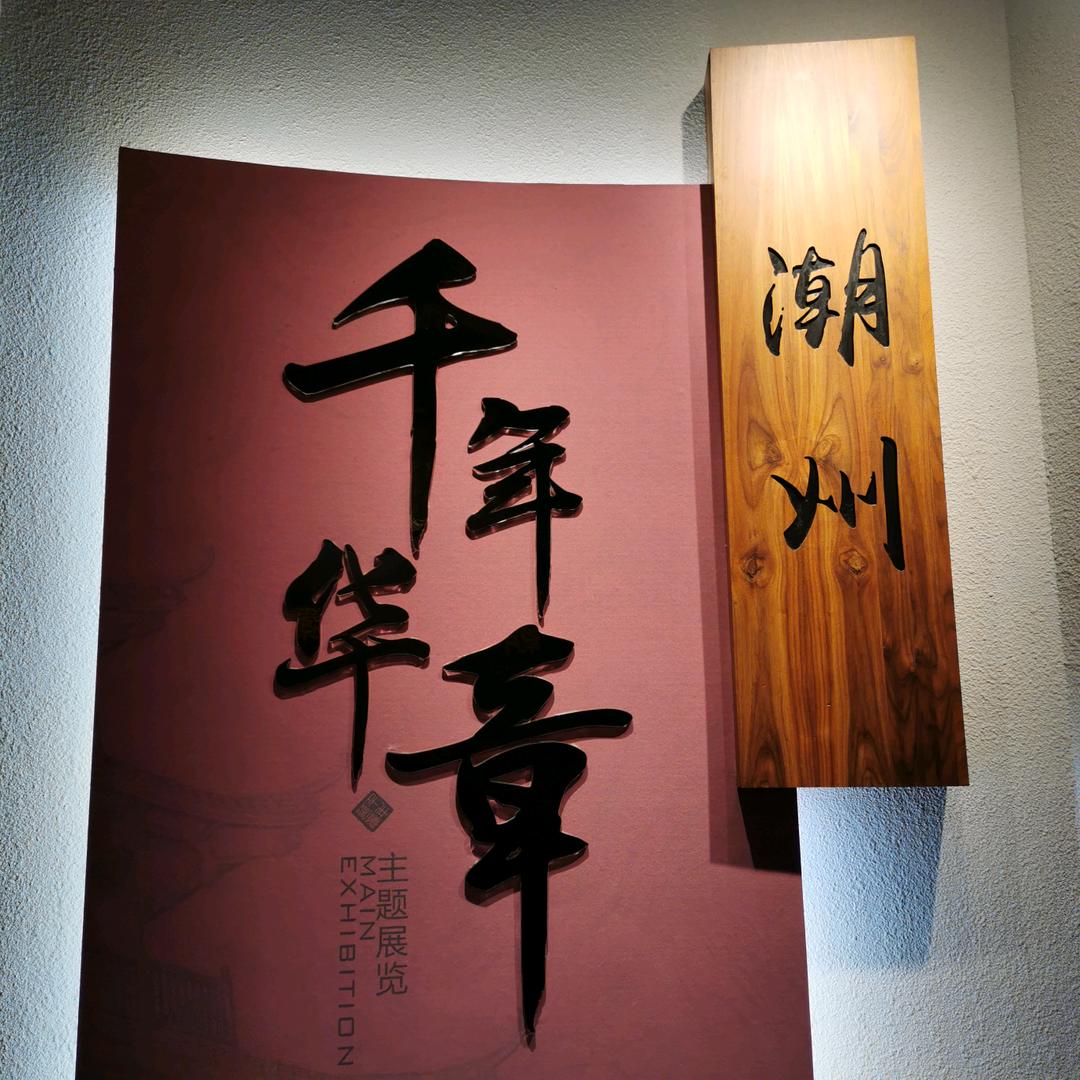 潮州
千年华章
主题展览
MAIN
EXHIBITION